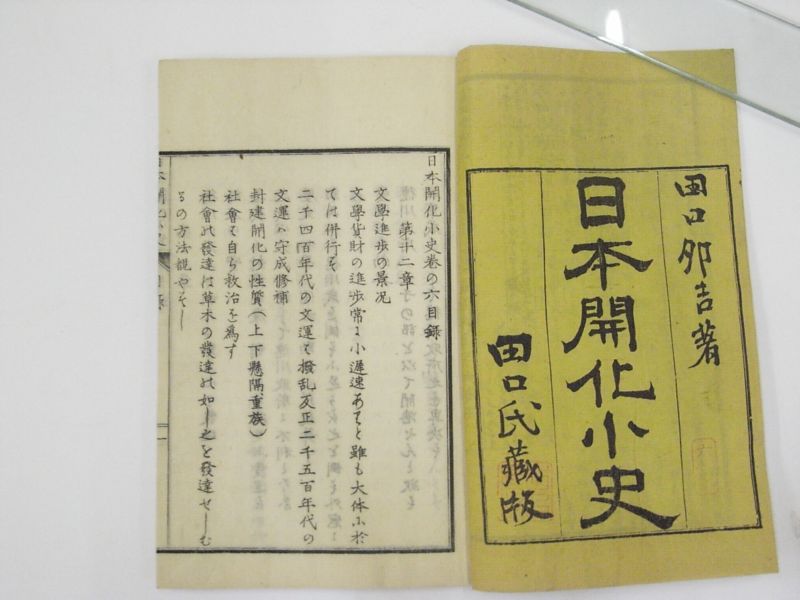 田口卯吉著
日本開化小史
田口氏藏版
日本開化小史巻の六目録
第十二章
文學進歩の景况
文學貨財の進歩常に小遲速あると雖も大体に於
ては併行す
二千四百年代の文運は撥乱反正二千五百年代の
文運は守成修補
封建開化の性質(上下懸隔重族)
社會は自ら救治を為す
社會の發達は草木の發達の如し之を發達せしむ
るの方法観やすし